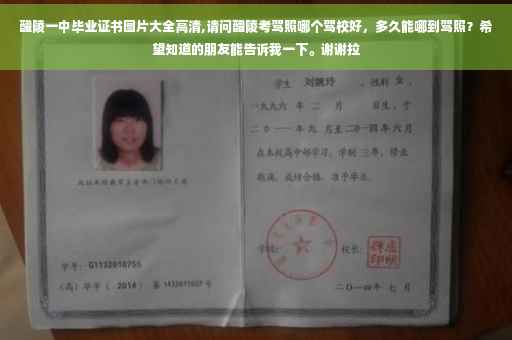 醴陵一中毕业证书图片大全高清,请问醴陵考驾照哪个驾校好，多久能哪到驾照？希
望知道的朋友能告诉我一下。谢谢拉
学生 刘婉玲 ，性别 女 ，
一九九六 年 二 月 日生，于
二〇一一年九 月至二〇一四年 六月
在本校高中部学习，学制 三年，修业
期满，成绩合格，准予毕业。
学校： 校长：
学号： G1132010755
（高）毕字（ 2014 ）第 1432011027 号
二〇一四年 七 月